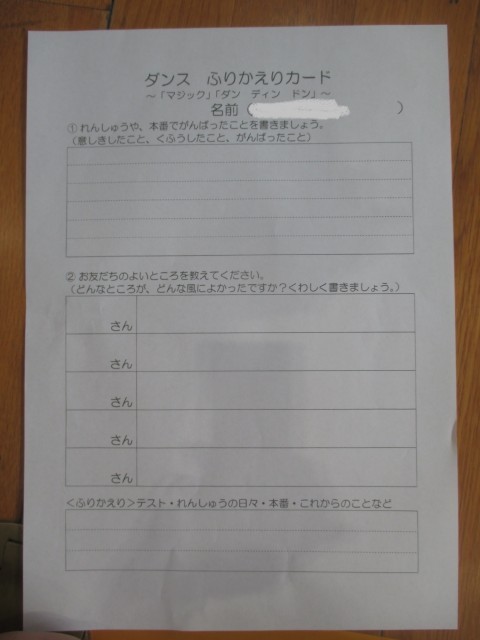 ダンス ふりかえりカード
～「マジック」「ダン ディン ドン」～
名前（ ）
① れんしゅうや、本番でがんばったことを書きましょう。
（意しきしたこと、くふうしたこと、がんばったこと）
② お友だちのよいところを教えてください。
（どんなところが、どんな風によかったですか？くわしく書きましょう。）
さん
さん
さん
さん
さん
＜ふりかえり＞テスト・れんしゅうの日々・本番・これからのことなど